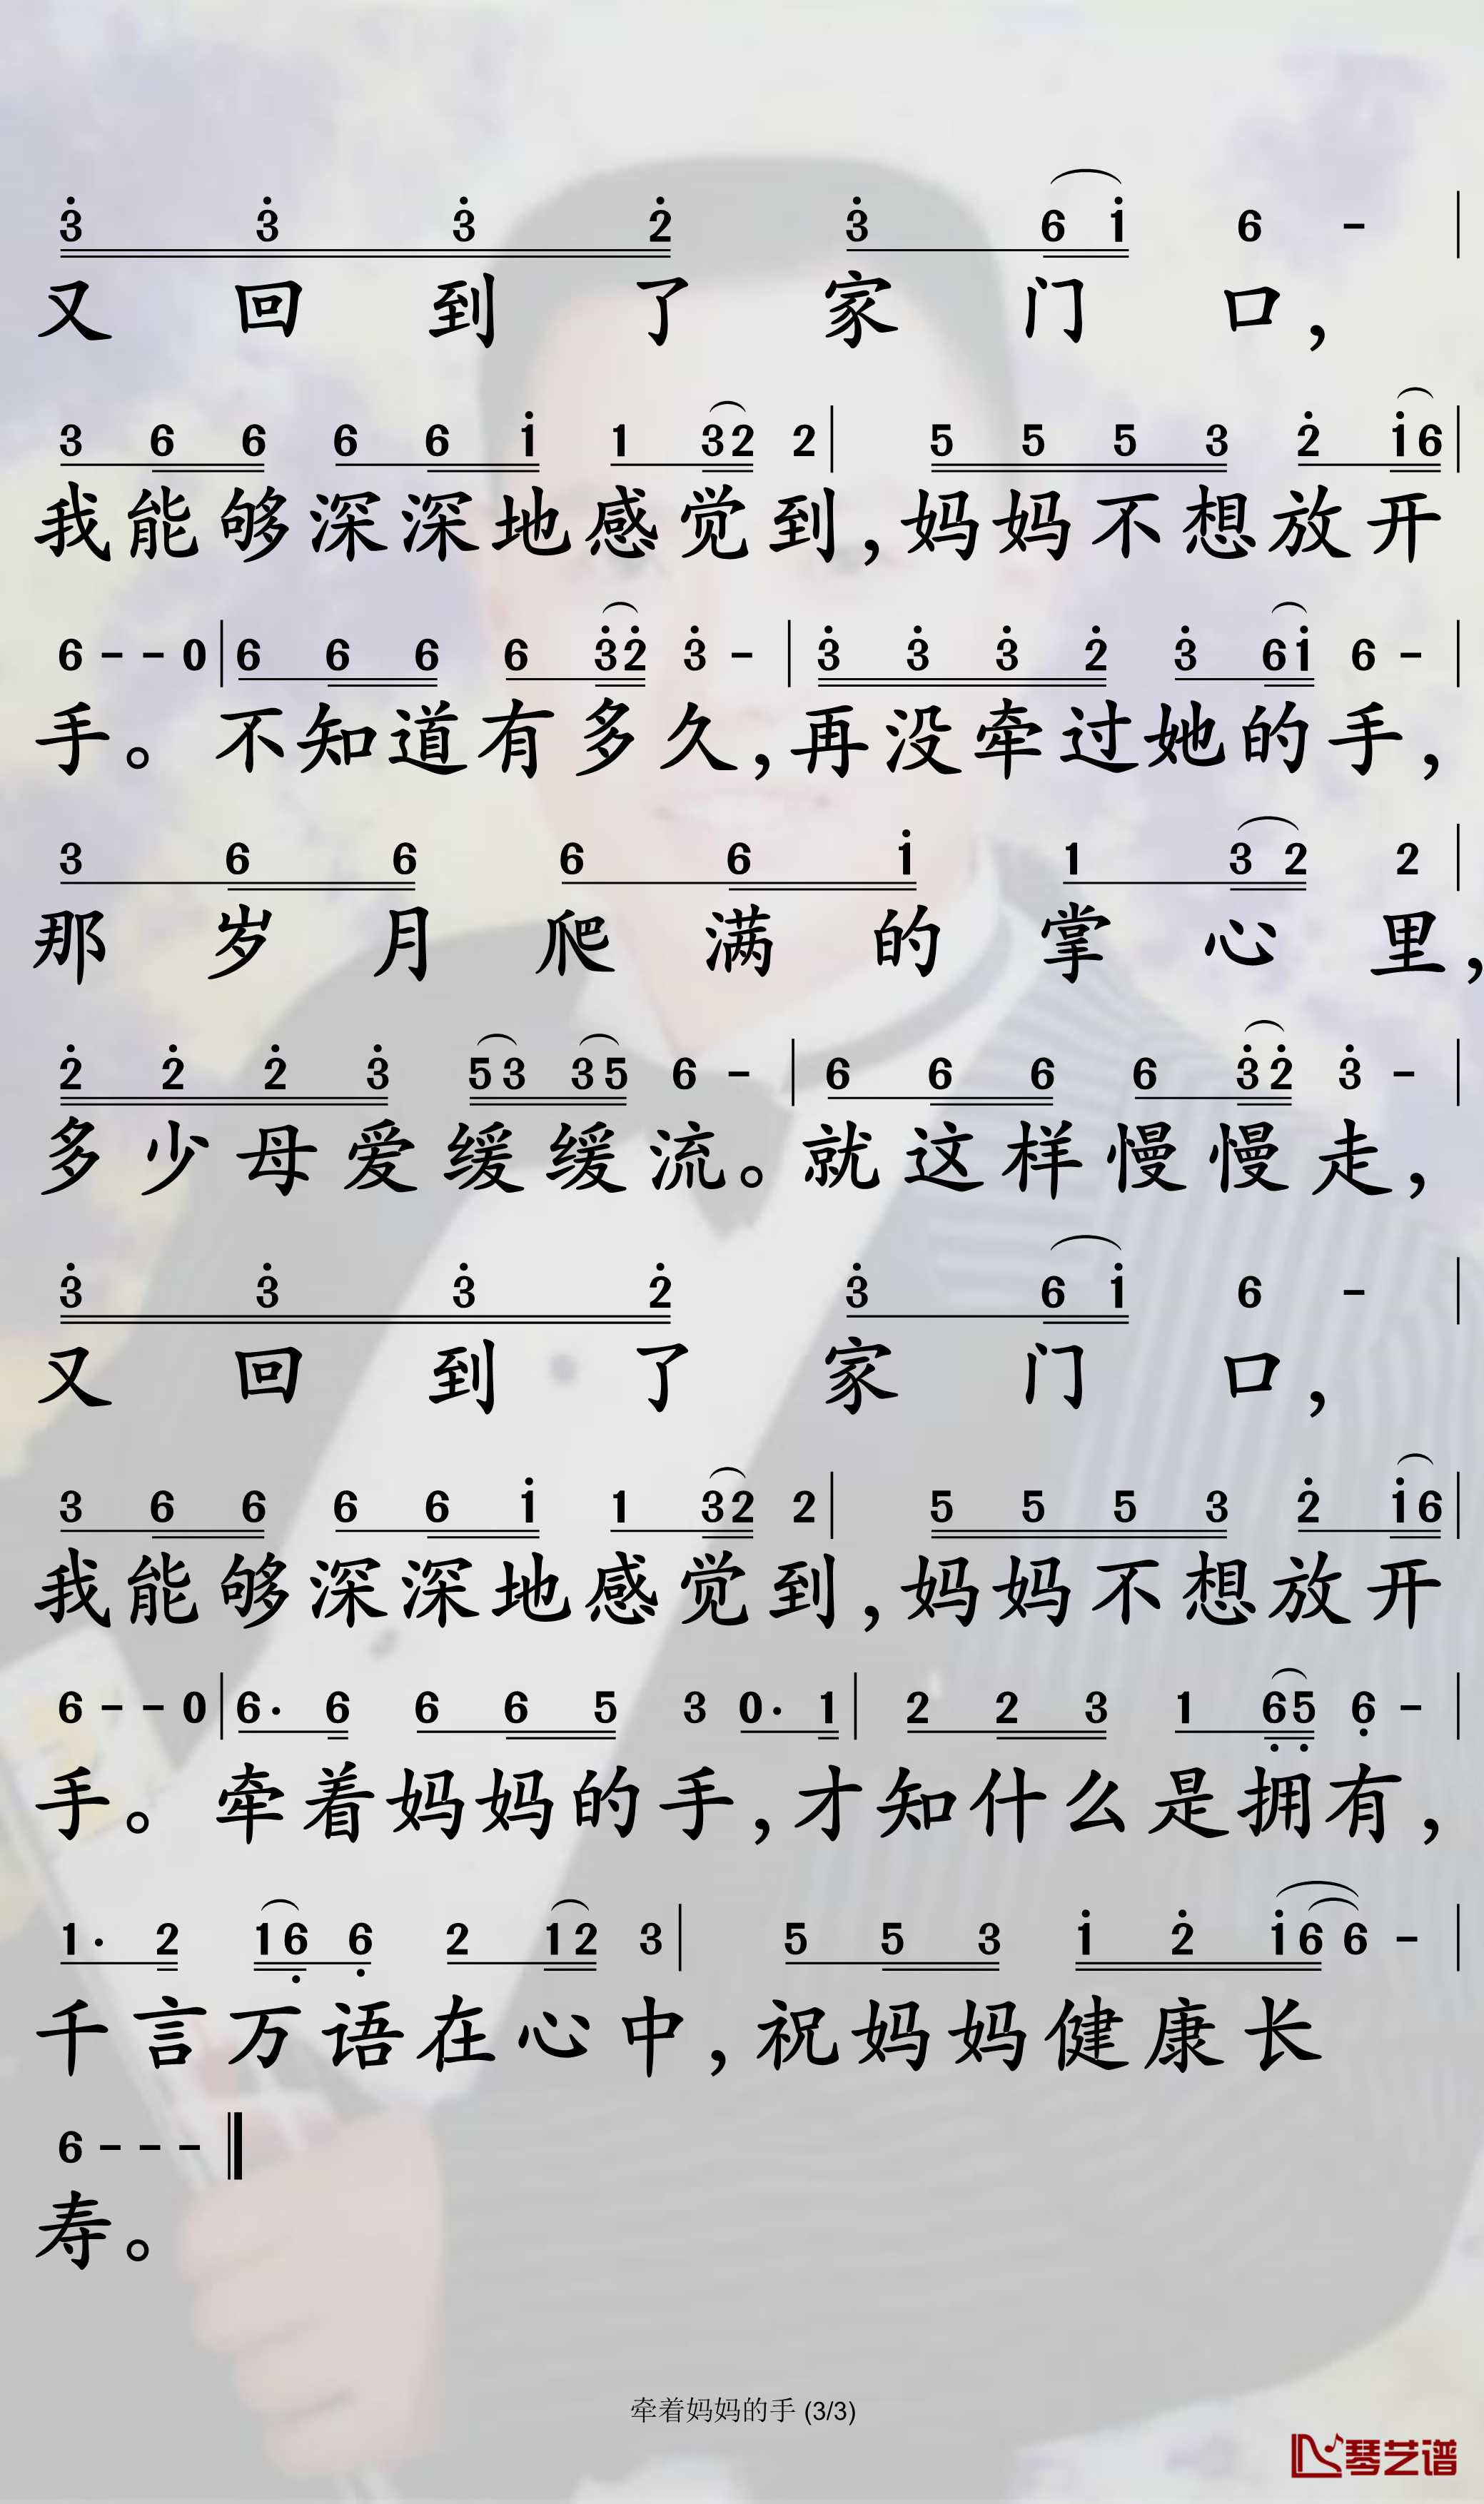 3̇ 3̇ 3̇ 2̇ 3̇ 6 1̇ 6 - |
又 回 到 了 家 门 口，
3 6 6 6 6 1̇ 1 3 2 2 | 5 5 5 3 2̇ 1̇ 6 |
我能够深深地感觉到，妈妈不想放开
6 - - 0 | 6 6 6 6 3̇ 2̇ 3̇ - | 3̇ 3̇ 3̇ 2̇ 3̇ 6 1̇ 6 - |
手。不知道有多久，再没牵过她的手，
3 6 6 6 6 1̇ 1 3 2 2 |
那 岁 月 爬 满 的 掌 心 里，
2̇ 2̇ 2̇ 3̇ 5 3 3 5 6 - | 6 6 6 6 3̇ 2̇ 3̇ - |
多少母爱缓缓流。就这样慢慢走，
3̇ 3̇ 3̇ 2̇ 3̇ 6 1̇ 6 - |
又 回 到 了 家 门 口，
3 6 6 6 6 1̇ 1 3 2 2 | 5 5 5 3 2̇ 1̇ 6 |
我能够深深地感觉到，妈妈不想放开
6 - - 0 | 6· 6 6 6 5 3 0· 1 | 2 2 3 1 6̣ 5̣ 6̣ - |
手。牵着妈妈的手，才知什么是拥有，
1· 2 1 6̣ 6̣ 2 1 2 3 | 5 5 3 1̇ 2̇ 1̇ 6 6 - |
千言万语在心中，祝妈妈健康长
6 - - - ‖
寿。
牵着妈妈的手 (3/3)
琴艺谱